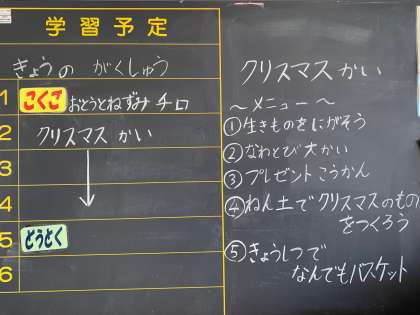 学習予定
きょうの がくしゅう
1 こくご おとうとねずみ チロ
2 クリスマス かい
3
4
5 どうとく
6
クリスマス かい
〜メニュー〜
①生きものをにがそう
②なわとび大かい
③プレゼントこうかん
④ねん土でクリスマスのもの
をつくろう
⑤きょうしつで
なんでもバスケット